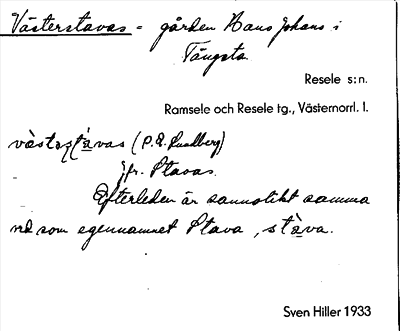 Västerstavas = gården Hans Johans i
Tängsta.
Resele s:n.
Ramsele och Resele tg., Västernorrl. l.
(P. E. Lundberg)
jfr. Stavas.
Efterleden är sannolikt samma
som egennamnet Stava, stàva.
Sven Hiller 1933